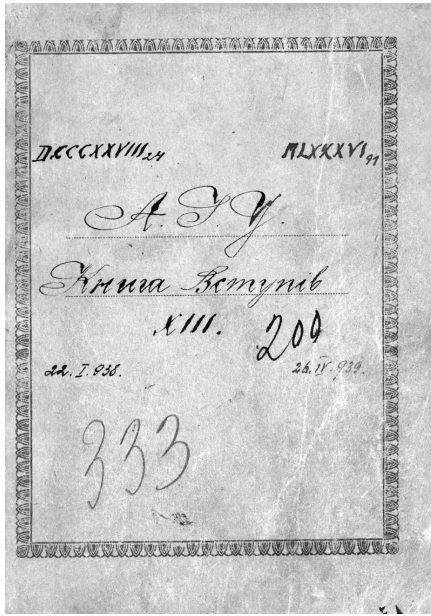 DCCCXXVIII 24 MLXXXVI 91
А. І. У.
Книга Вступів
XIII. 200
22. I. 938. 26. IV. 939.
333